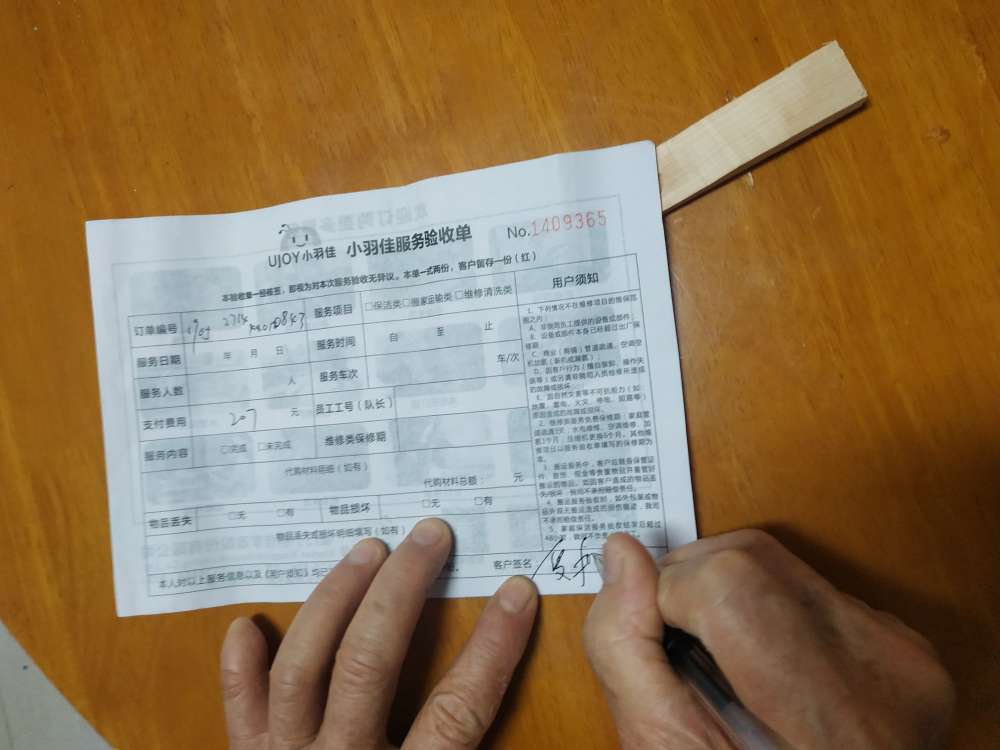 UJOY小羽佳 小羽佳服务验收单 No.1409365
本验收单一经签签，即视为对本次服务验收无异议。本单一式两份，客户留存一份（红）
订单编号 服务项目 □保洁类□搬家运输类□维修清洗类
服务日期 年 月 日 服务时间 自 至 止
服务人数 人 服务车次 车/次
支付费用 207 元 员工工号（队长）
服务内容 □完成 □未完成 维修类保修期
代购材料明细（如有）
代购材料总额： 元
物品丢失 □无 □有 物品损坏 □无 □有
物品丢失或损坏明细填写（如有）
本人对以上服务信息以及《用户须知》均已
客户签名
用户须知
1、下列情况不在维修项目的维保范
围之内：
A、非我司员工提供的设备或部件；
B、设备或部件本身已经超过出厂保
修期；
C、商业（商铺）管道疏通、空调空
D、因客户行为（擅自拆卸、操作失
误等）或另请非我司人员检修所造成
的故障或损坏
E、因自然灾害等不可抗拒力（如
地震、雷电、火灾、停电、短路等）
原因造成的故障或损坏。
2、维修类服务免费保修期：家庭管
3、搬运服务中，客户应随身保管证
件、首饰、现金等贵重物品并看管好
搬运的物品。如因客户造成的物品丢
失/损坏，我司不承担赔偿责任。
4、搬运服务验收时，如外包装或物
不承担赔偿责任。
5、家庭保洁服务验收结束后超过